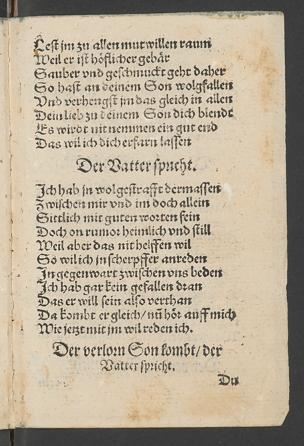 Lest jm zu allen mutwillen raum
Weil er ist höflicher gebär
Sauber vnd geschmuckt geht daher
So hast an deinem Son wolgfallen
Vnd verhengst jm das gleich in allen
Dein lieb zu deinem Son dich blendt
Es wirdt nit nemmen ein gut end
Das wil ich dich erfarn lassen
Der Vatter spricht.
Ich hab jn wol gestrafft dermassen
Zwischen mir vnd im doch allein
Sittlich mit guten worten fein
Doch on rumor heimlich vnd still
Weil aber das nit helffen wil
So wil ich jn scherpffer anreden
In gegenwart zwischen vns beden
Ich hab gar kein gefallen dran
Das er will sein also verthan
Da kombt er gleich / nũ hör auff mich
Wie jetzt mit jm wil reden ich.
Der verlorn Son kombt / der
Vatter spricht.
Du